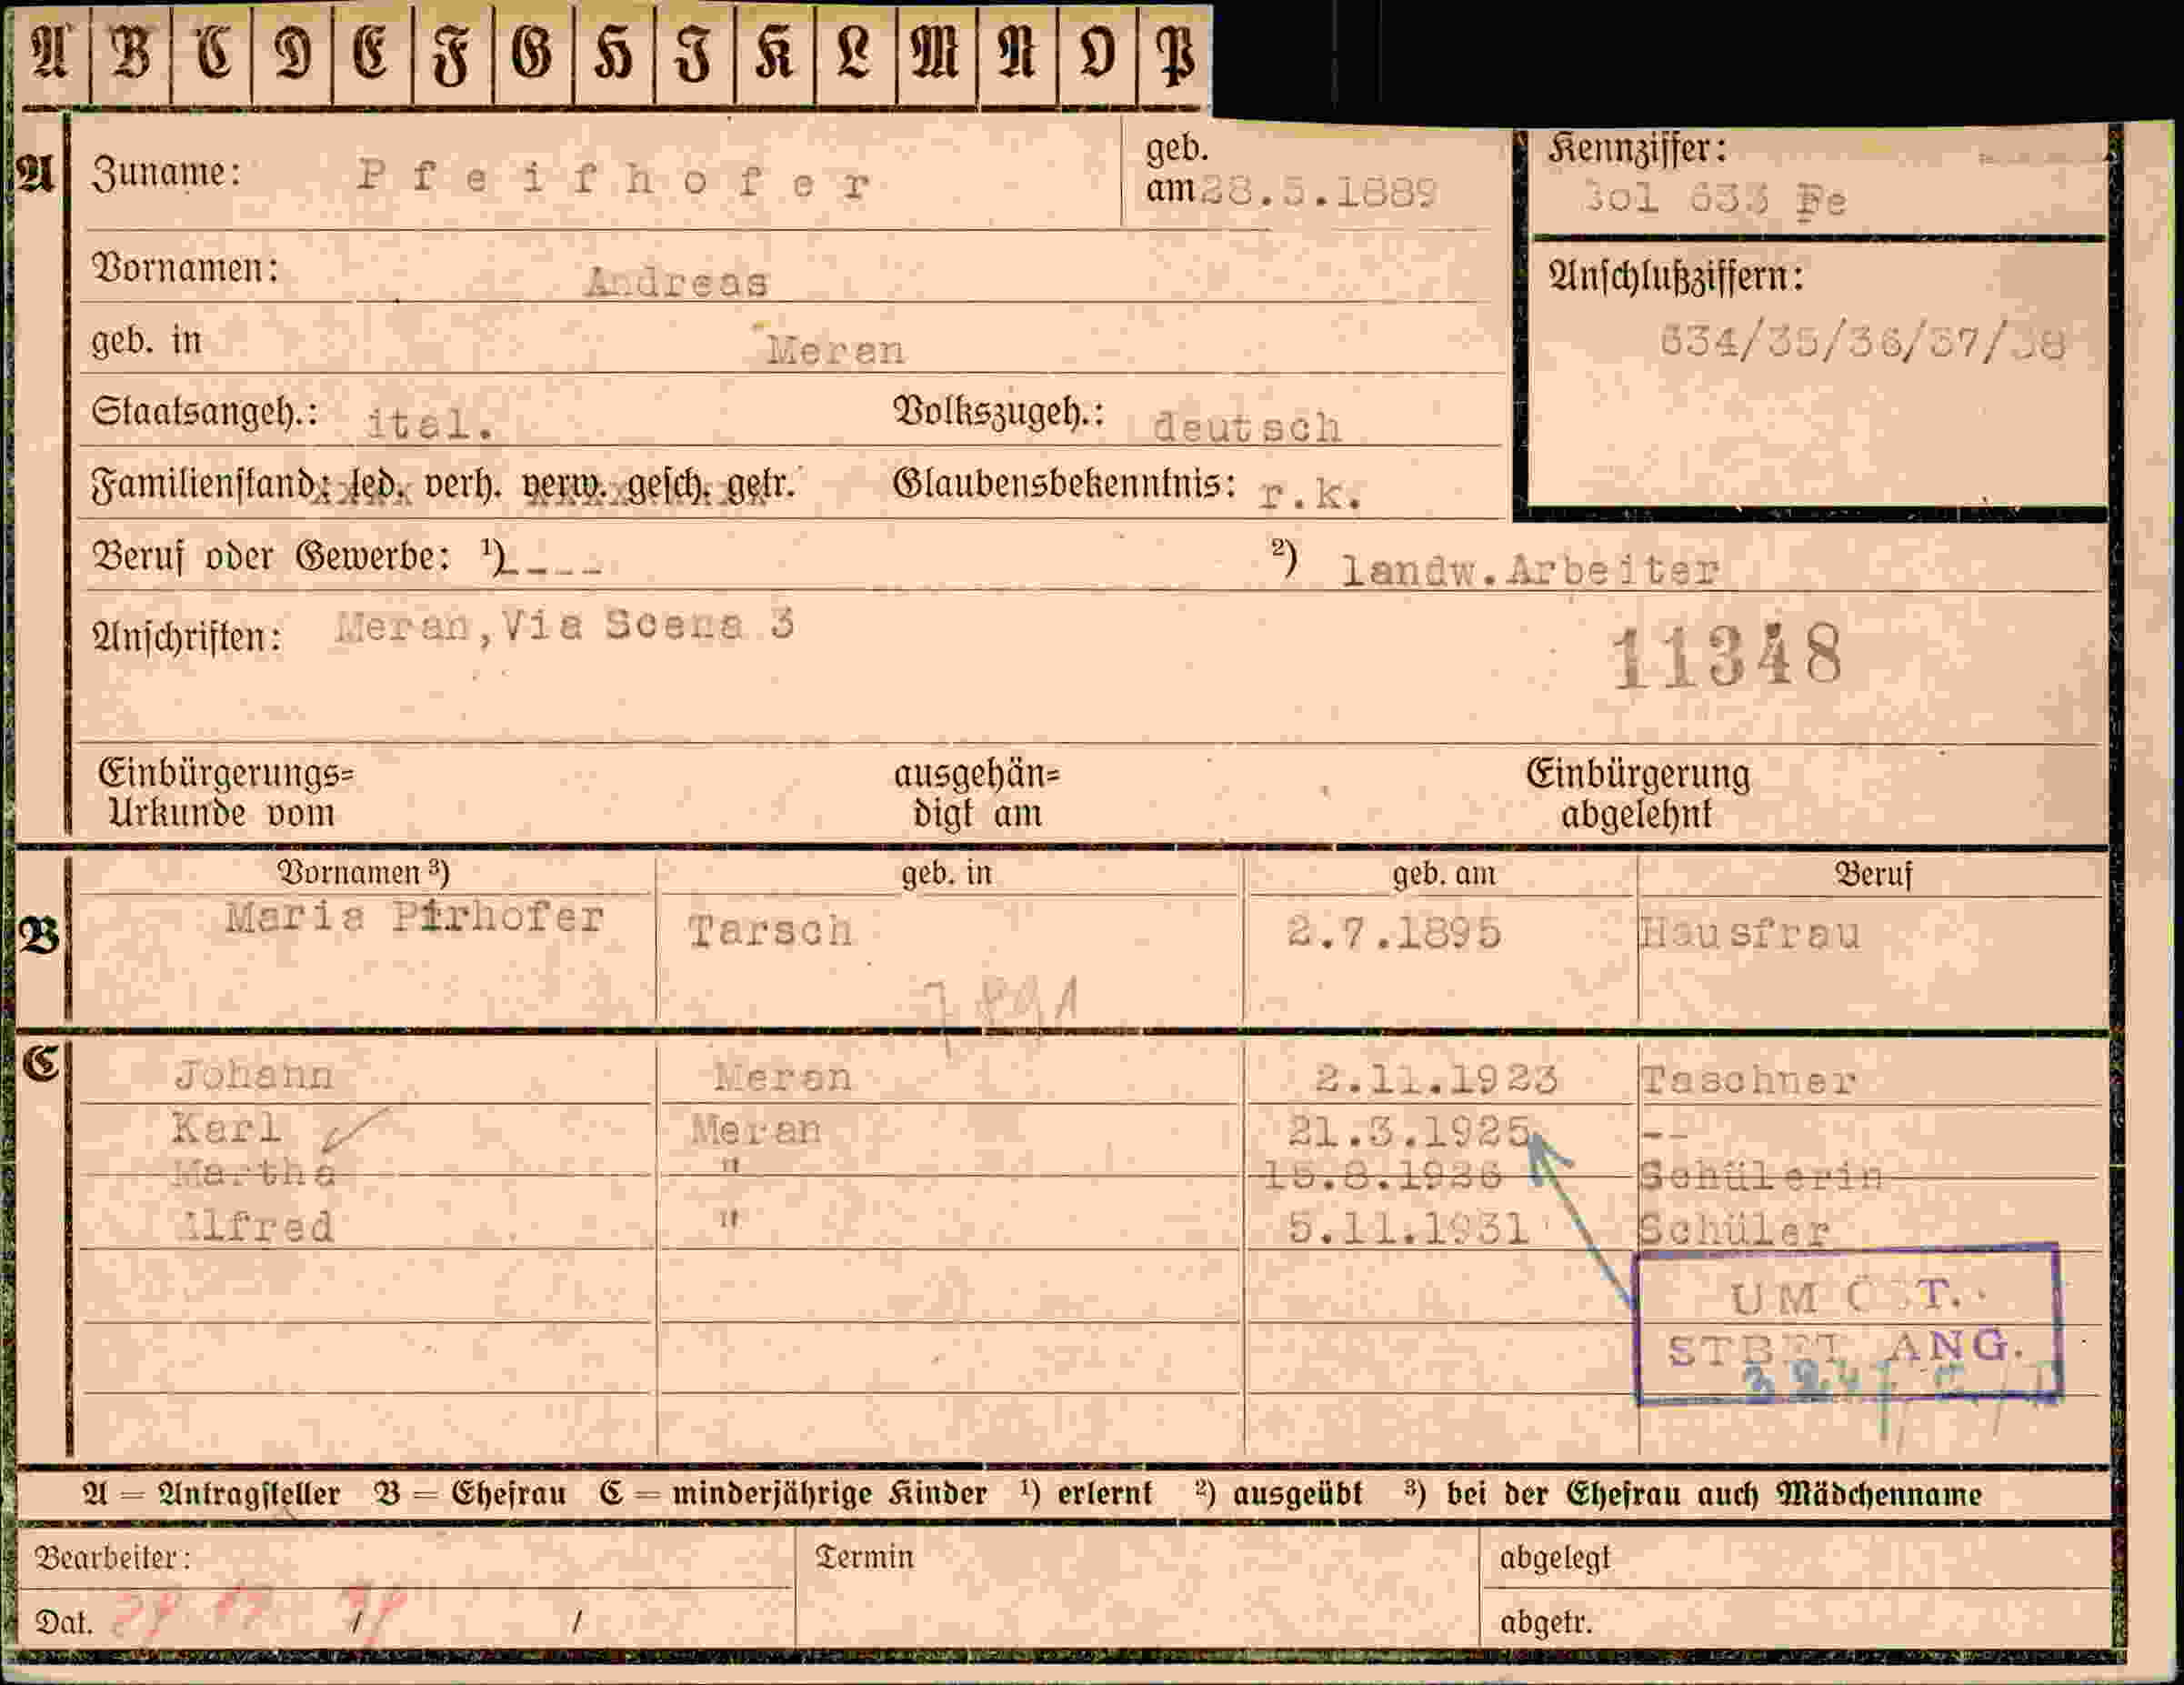 A B C D E F G H I K L M N O P
A Zuname: Pfeifhofer geb. am 28.5.1889 Kennziffer:
633 Fe
Vornamen: Andreas Anschlußziffern:
geb. in Meran 634/35/36/37/38
Staatsangeh.: ital. Volkszugeh.: deutsch
Familienstand: led. verh. verw. gesch. getr. Glaubensbekenntnis: r.k.
Beruf oder Gewerbe: ¹) ---- ²) landw.Arbeiter
Anschriften: Meran,Via Scena 3
11348
Einbürgerungs= ausgehän= Einbürgerung
Urkunde vom digt am abgelehnt
Vornamen ³) geb. in geb. am Beruf
B Maria Pirhofer Tarsch 2.7.1895 Hausfrau
7891
C Johann Meran 2.11.1923 Taschner
Karl Meran 21.3.1925 --
Martha " 15.8.1926 Schülerin
Alfred " 5.11.1931 Schüler
UM
ANG.
A = Antragsteller B = Ehefrau C = minderjährige Kinder ¹) erlernt ²) ausgeübt ³) bei der Ehefrau auch Mädchenname
Bearbeiter: Termin abgelegt
Dat. / / abgetr.